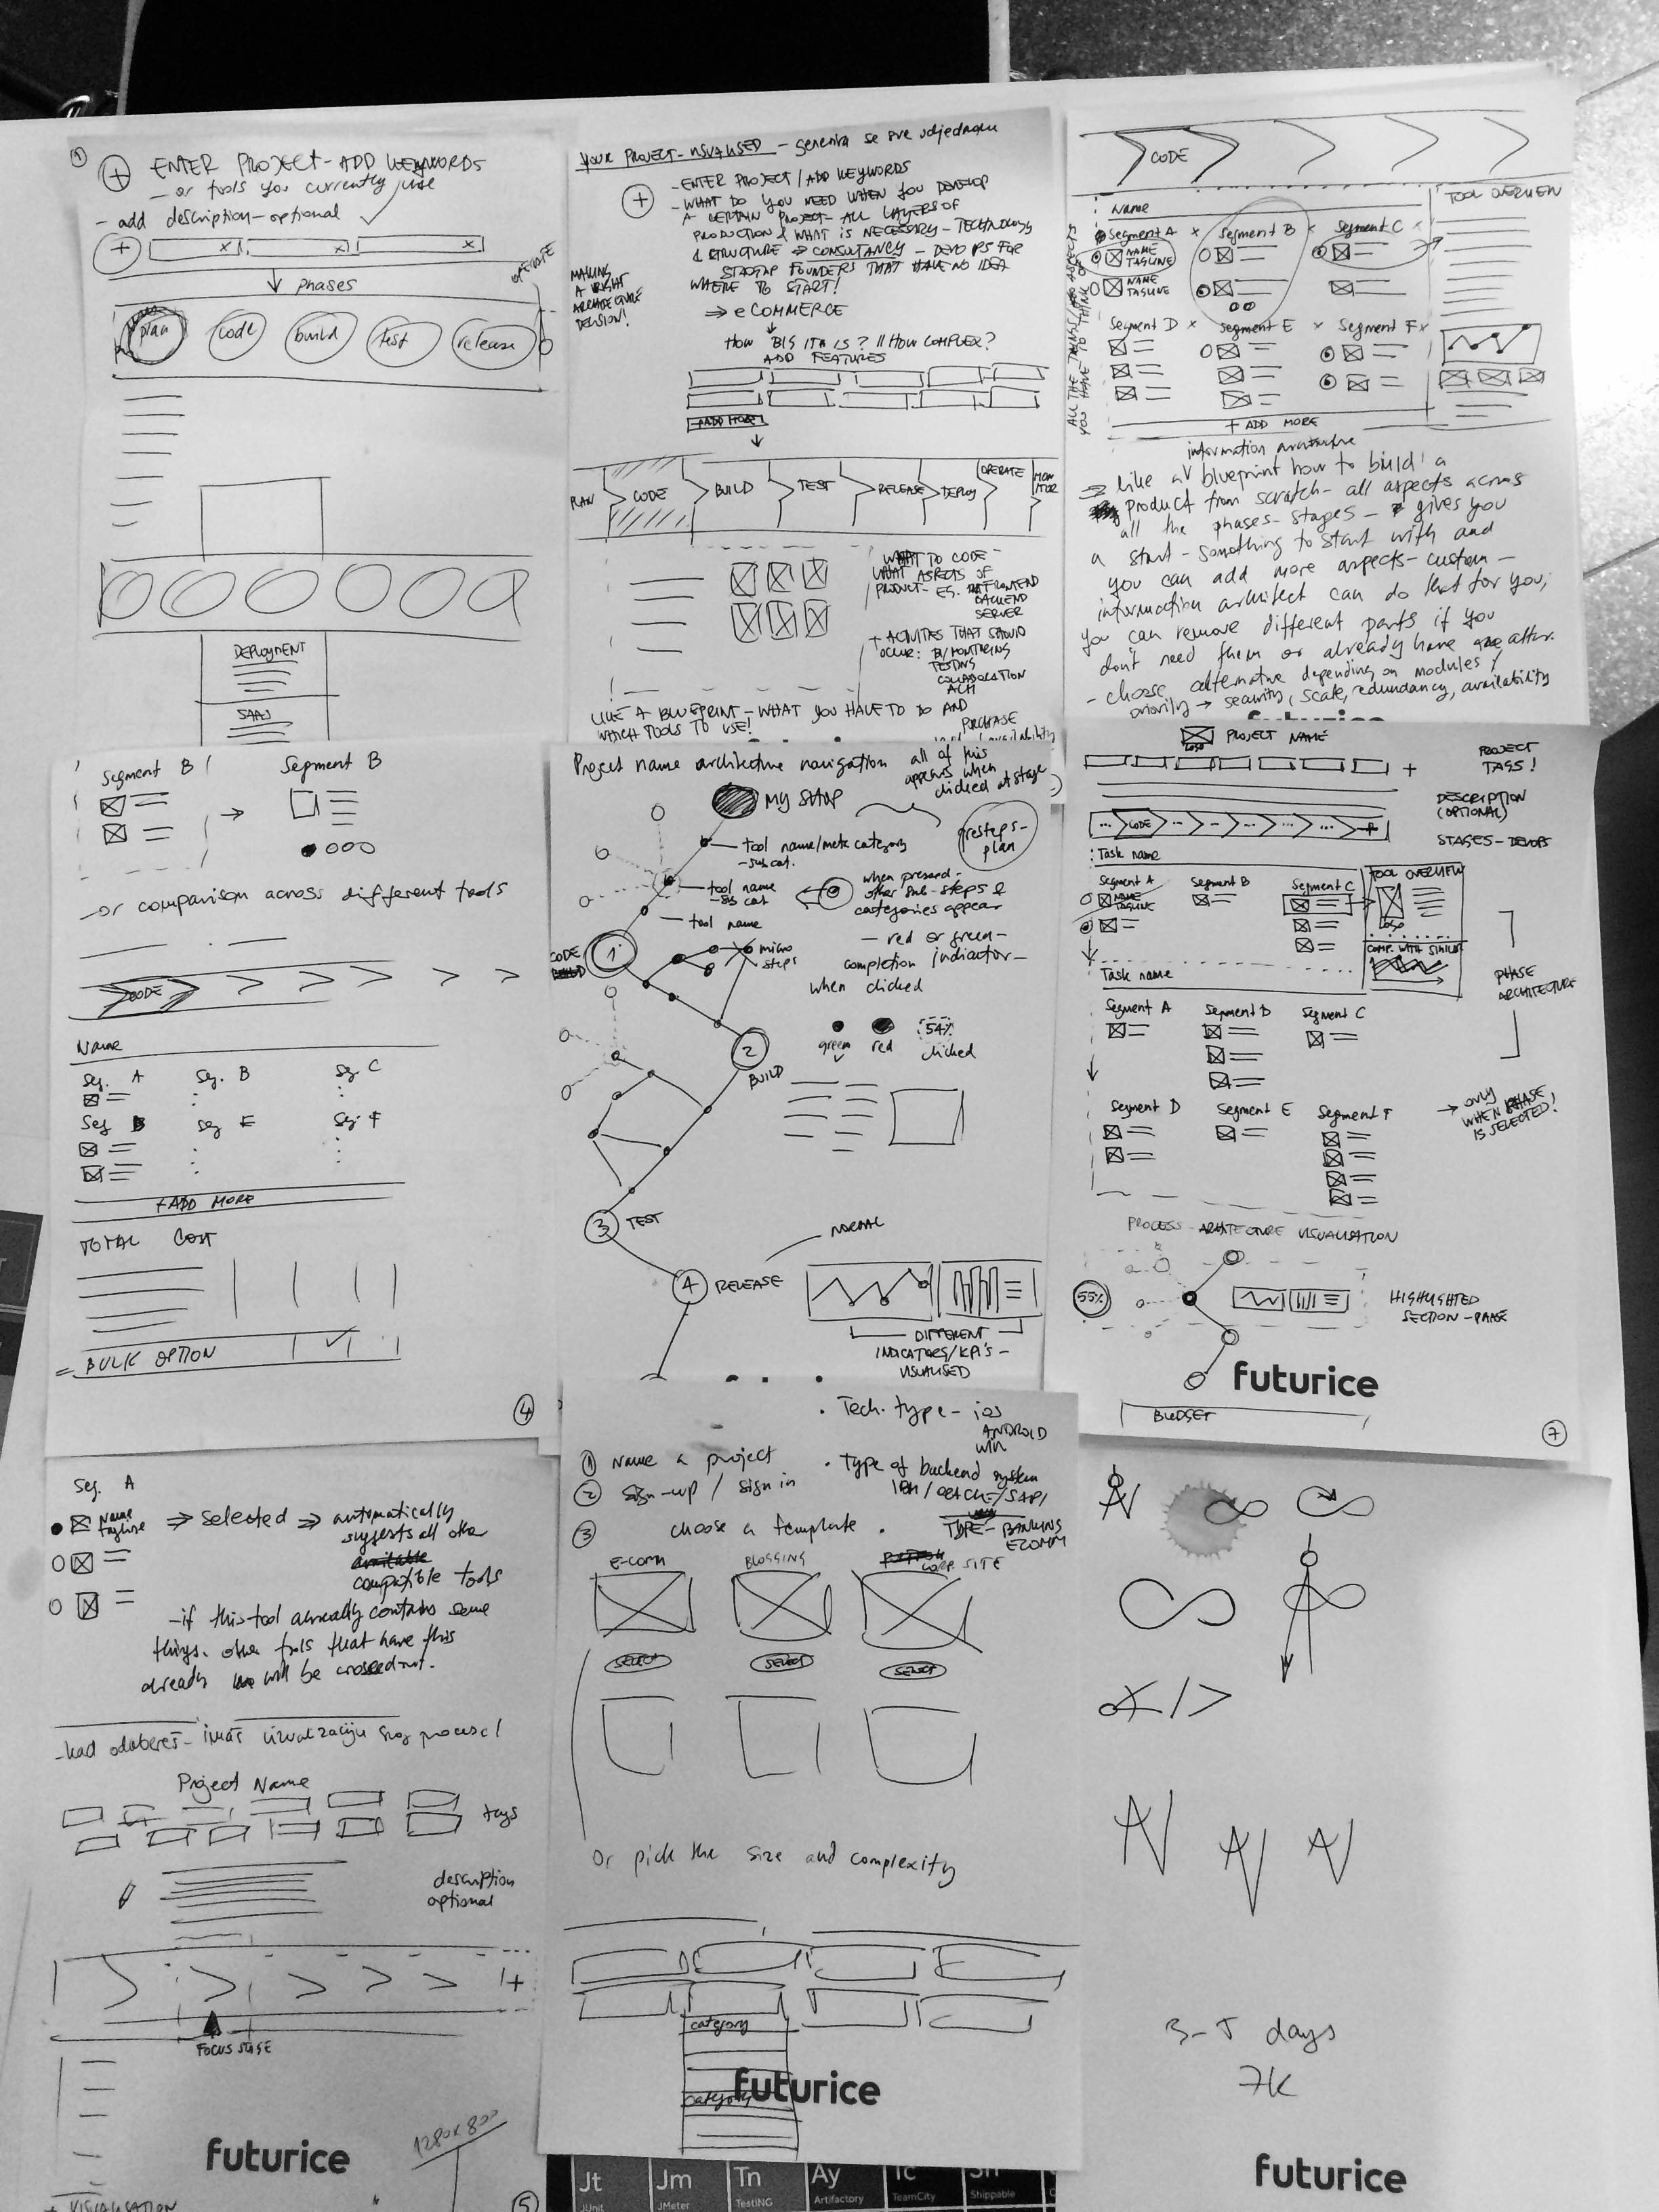 1
+ ENTER PROJECT - ADD KEYWORDS
- or tools you currently use
- add description - optional
+ x x x
↓ phases
OPERATE
plan code build test release
DEPLOYMENT
SAAS
YOUR PROJECT - VISUALISED - generira se sve odjednom
+ - ENTER PROJECT / ADD KEYWORDS
- WHAT DO YOU NEED WHEN YOU DEVELOP
A CERTAIN PROJECT - ALL LAYERS OF
PRODUCTION & WHAT IS NECESSARY - TECHNOLOGY
& STRUCTURE => CONSULTANCY - DEVOPS FOR
STARTUP FOUNDERS THAT HAVE NO IDEA
WHERE TO START!
MAKING
A RIGHT
ARCHITECTURE
DECISION!
=> eCOMMERCE
↓
HOW BIG IT IS? // HOW COMPLEX?
ADD FEATURES
+ADD MORE
↓
PLAN CODE BUILD TEST RELEASE DEPLOY OPERATE MONITOR
WHAT TO CODE -
WHAT ASPECTS OF
PRODUCT - EG. FRONTEND
BACKEND
SERVER
+ ACTIVITIES THAT SHOULD
OCCUR: BI/MONITORING
TESTING
COLLABORATION
ALM
LIKE A BLUEPRINT - WHAT YOU HAVE TO DO AND
WHICH TOOLS TO USE!
PURCHASE
CODE
TOOL OVERVIEW
Name
Segment A x Segment B x Segment C x
NAME
TAGLINE
NAME
TAGLINE
Segment D x Segment E x Segment F x
ALL THE THINGS/ASPECTS
YOU HAVE TO THINK OF
+ ADD MORE
information architecture
=> Like a blueprint how to build a
product from scratch - all aspects across
all the phases - stages - gives you
a start - something to start with and
you can add more aspects - custom -
information architect can do that for you;
you can remove different parts if you
don't need them or already have
- choose alternative depending on modules /
priority → security, scale, redundancy, availability
Segment B → Segment B
- or comparison across different tools
CODE
Name
Seg. A Seg. B Seg C
Seg E Seg. F
+ ADD MORE
TOTAL COST
= BULK OPTION
4
Project name architecture navigation all of this
appears when
clicked at stage
MY SHOP
presteps -
plan
tool name/meta category
- sub cat.
tool name
- sub cat
tool name
when pressed -
other sub-steps &
categories appear
- red or green -
completion indicator -
when clicked
CODE
1
micro
steps
green red 54%
clicked
2
BUILD
3 TEST
4 RELEASE
NORMAL
DIFFERENT
INDICATORS/KPI'S -
VISUALISED
LOGO PROJECT NAME
+ PROJECT
TAGS!
DESCRIPTION
(OPTIONAL)
... CODE ... +
STAGES - DEVOPS
Task name
Segment A Segment B Segment C
NAME
TAGLINE
TOOL OVERVIEW
LOGO
COMP. WITH SIMILAR
Task name
PHASE
ARCHITECTURE
Segment A Segment B Segment C
Segment D Segment E Segment F
→ only
WHEN PHASE
IS SELECTED!
PROCESS - ARCHITECTURE VISUALISATION
55%
HIGHLIGHTED
SECTION - PHASE
futurice
BUDGET
7
Seg. A
Name
tagline => selected => automatically
suggests all other
compatible tools
- if this tool already contains some
things. other tools that have this
already will be crossed out.
- kad odabereš - imaš vizualizaciju svog procesa!
Project Name
tags
description
optional
+
FOCUS STAGE
1280x800
futurice
+ VISUALISATION
5
. Tech. type - ios
ANDROID
WIN
1 Name a project
. Type of backend system
2 Sign-up / sign in
IBM / ORACLE / SAP /
3 choose a template .
TYPE - BANKING
ECOMM
E-COMM BLOGGING CORP. SITE
SELECT SELECT SELECT
Or pick the size and complexity
category
category
futurice
/>
3-5 days
7K
futurice
Jt Jm Tn Ay Tc
JUnit JMeter TestNG Artifactory TeamCity Shippable